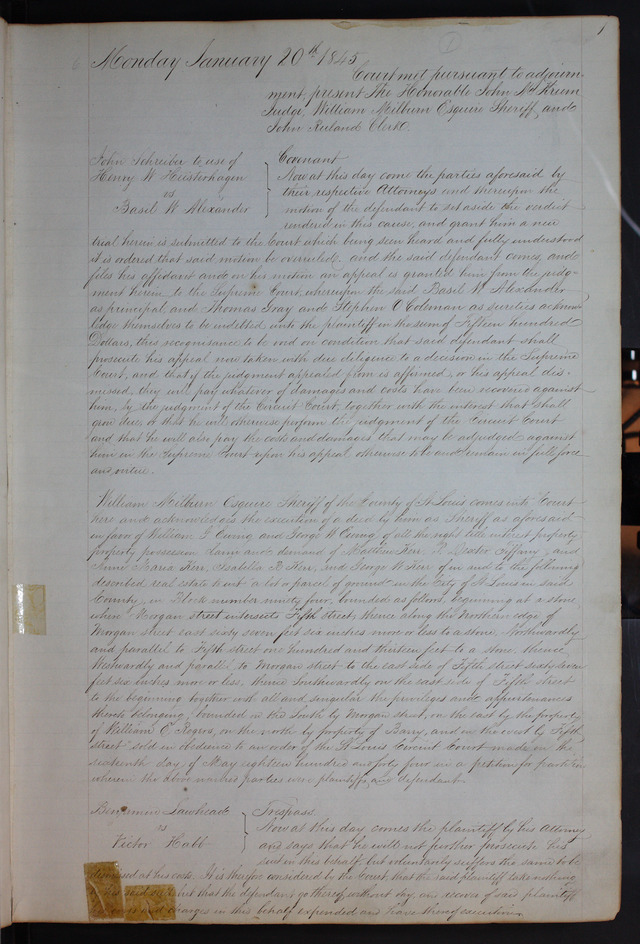 1
Monday January 20th 1845
Court met pursuant to adjourn-
ment, present The Honorable John M Krum
Judge, William Milburn Esquire Sheriff, and
John Ruland Clerk.
John Schreiber to use of
Henry W Heisterhagen
vs
Basil W Alexander
Covenant
Now at this day come the parties aforesaid by
their respective Attorneys and thereupon the
motion of the defendant to set aside the verdict
rendered in this cause, and grant him a new
trial herein is submitted to the Court which being seen heard and fully understood
it is ordered that said motion be overruled. and the said defendant comes, and
files his affidavit and on his motion an appeal is granted him from the judg-
ment herein to the Supreme Court, whereupon the said Basil W Alexander
as principal, and Thomas Gray and Stephen O Coleman as sureties acknow-
ledge themselves to be indebted unto the plaintiff in the sum of Fifteen hundred
Dollars, this recognisance to be void on condition that said defendant shall
prosecute his appeal now taken with due diligence to a decision in the Supreme
Court, and that if the judgment appealed from is affirmed, or his appeal dis-
missed, they will pay whatever of damages and costs have been recovered against
him, by the judgment of the Circuit Court, together with the interest that shall
grow due, or that he will otherwise perform the judgment of the Circuit Court
and that he will also pay the costs and damages that may be adjudged against
him in the Supreme Court upon his appeal otherwise to be and remain in full force
and virtue.
William Milburn Esquire Sheriff of the County of St Louis comes into Court
here and acknowledges the execution of a deed by him as Sheriff as aforesaid
in favor of William L Ewing and George W Ewing of all the right title interest property
property possession claim and demand of Matthew Kerr, P. Dexter Tiffany, and
Anne Maria Kerr, Isabella R Kerr, and George W Kerr of in and to the following
described real estate to wit "a lot or parcel of ground in the City of St Louis in said
County, in Block number ninety four, bounded as follows, beginning at a stone
where Morgan street intersects Fifth street, thence along the Northern edge of
Morgan street east sixty seven feet six inches more or less to a stone. Northwardly
and parallel to Fifth street one hundred and thirteen feet to a stone thence
Westwardly and parallel to Morgan street to the east side of Fifth street sixty seven
feet six inches more or less, thence Southwardly on the east side of Fifth street
to the beginning together with all and singular the privileges and appurtenances
thereto belonging, bounded on the South by Morgan street, on the east by the property
of William C. Rogers, on the north by property of Barry, and on the west by Fifth
street" sold in obedience to an order of the St Louis Circuit Court made on the
sixteenth day of May eighteen hundred and forty four in a petition for partition
wherein the above named parties were plaintiffs, and defendants.
Benjamin Lawhead
vs
Victor Habb
Trespass
Now at this day comes the plaintiff by his Attorney
and says that he will not further prosecute his
suit in this behalf but voluntarily suffers the same to be
dismissed at his costs. It is therefore considered by the Court that the said plaintiff take nothing
by his suit but that the defendant go thereof without day, and recover of said plaintiff
his costs and charges in this behalf expended and have thereof execution.